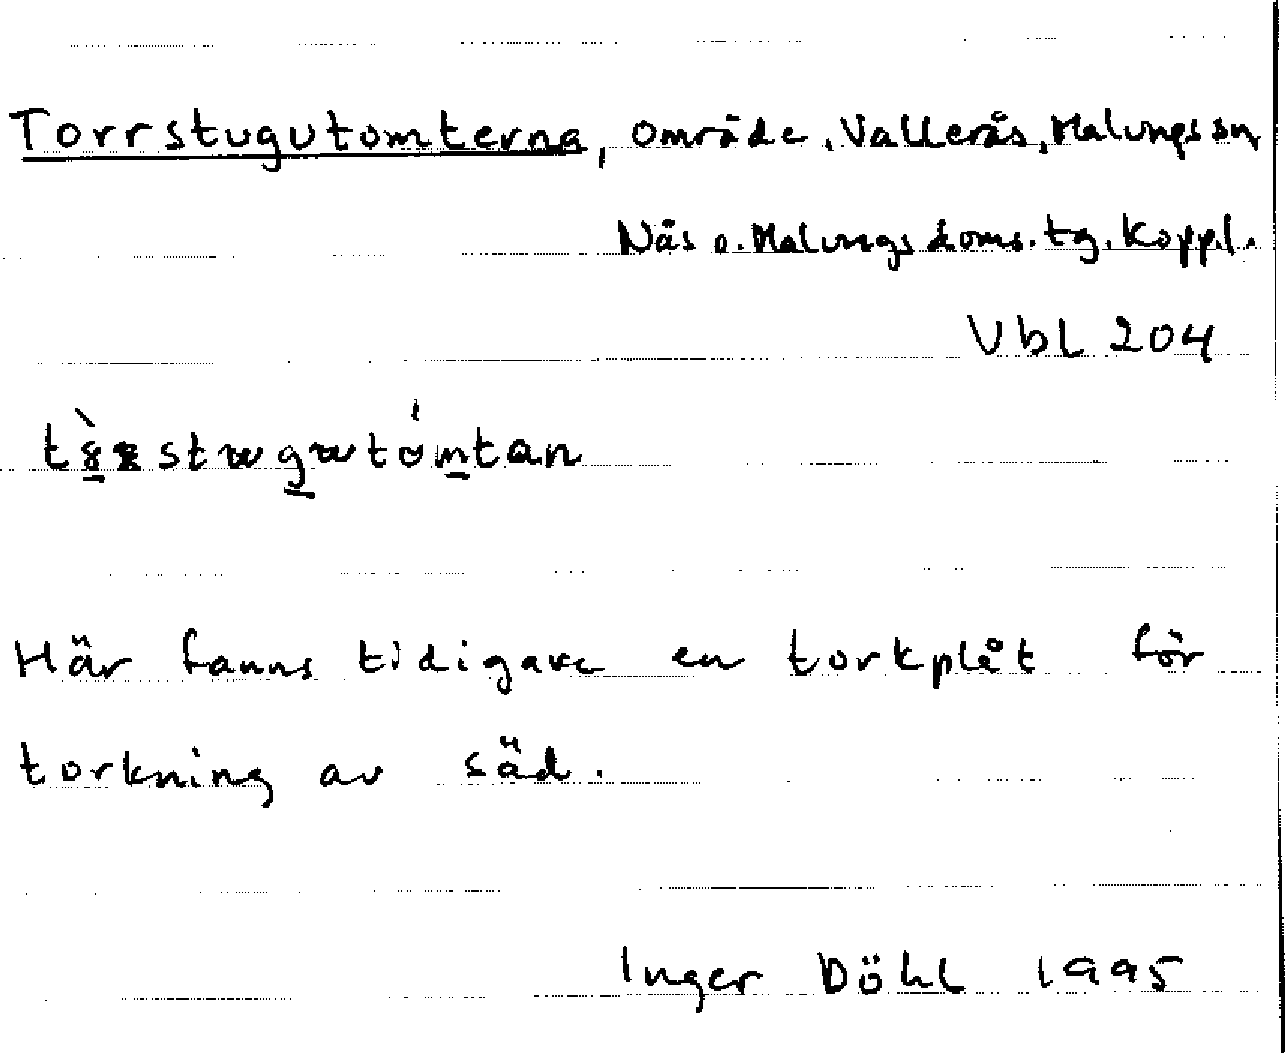 Torrstugutomterna, område, Vallerås, Malungs sn
Nås o. Malungs doms. tg. Koppl.
Vbl 204
Här fanns tidigare en torkplåt för
torkning av säd.
Inger Döhl 1995